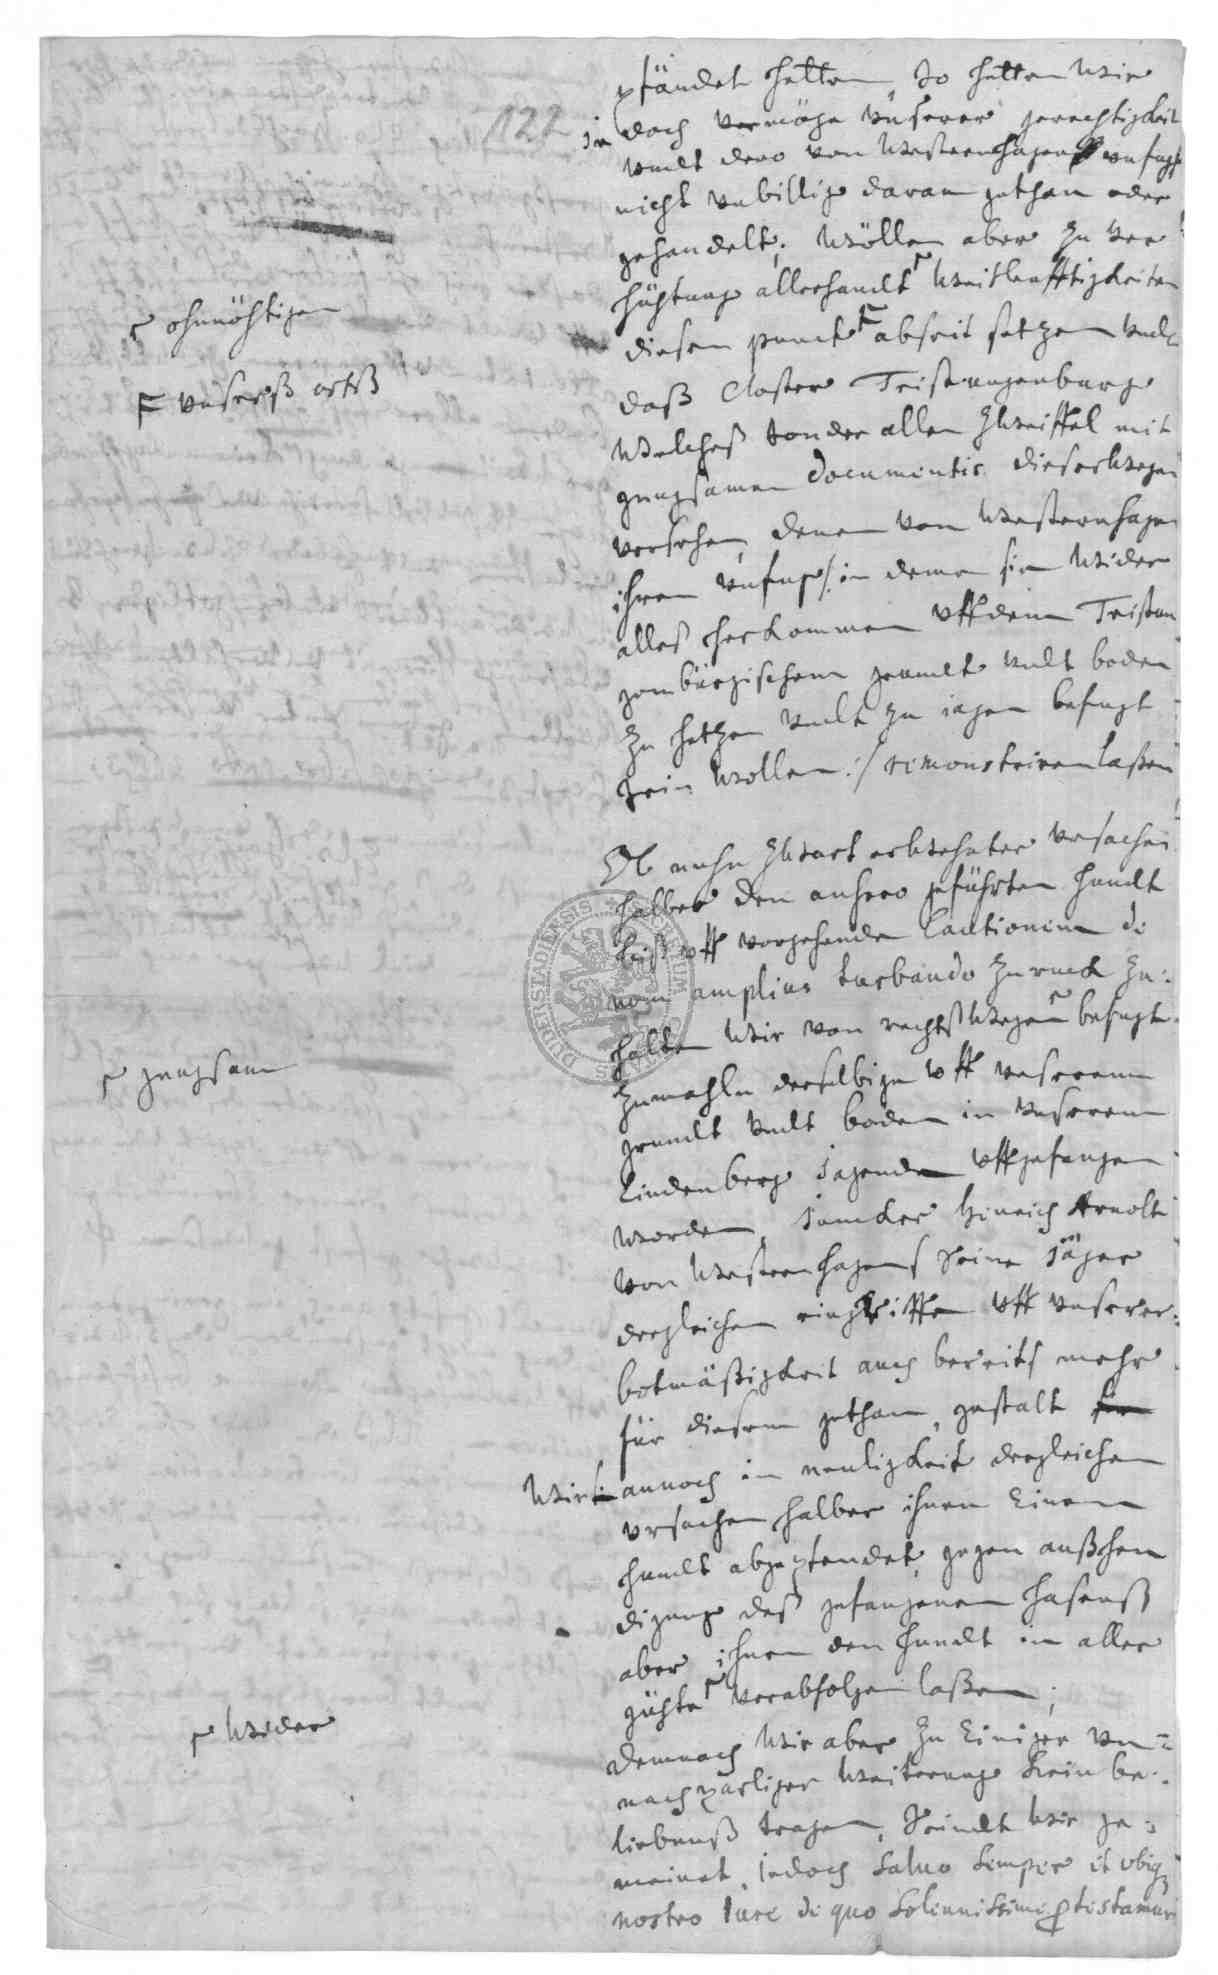 122
pfändet hetten, so hetten wir
Ja doch vermöge unserer gerechtigkeit
undt dero von Westernhagen unfugs
nicht unbillig daran gethan oder
gehandelt; wöllen aber zu ver
hühtung allerhandt ┌ weitleufftigkeiten
┌ ohnnöhtigen
diesen punct F abseit setzen undt
F unserß ortß
daß Closter Teistungenburg
welcheß sonder allen zweiffel mit
gnugsamen documentis dieserwegen
versehen, denen von Westernhagen
ihren unfug /: in deme sie wider
alles herkommen uff dem Teistun
genbürgischem grundt undt boden
zu hetzen undt zu iagen befugt
sein wollen :/ remonstriren laßen
Ob nuhn zwart erwehnter ursachen
halber den anhero geführten hundt
biß uff vorgehende Cautionem de
non amplius turbando zuruck zu:
halten wir von rechtß wegen ┌ befugt
┌ gnugsam
zumahln derselbige uff unserem
grundt undt boden in unserem
Lindenberg Jagende uffgefangen
worden, Juncker Hinrich Arnolt
von Westernhagens seine Jäger
dergleichen eingriffen uff unserer
botmäßigkeit auch bereits mehr
für diesem gethan, gestalt
wir annoch in neuligkeit dergleichen
ursachen halber ihnen Einen
hundt abgepfendet, gegen außhen
digung deß gefangenen hasenß
aber ihnen den hundt in aller
gühte ┌ verabfolgen laßen;
┌ wieder
Demnach wir aber zu Einiger un=
nachparliger weiterung kein be:
liebnuß tragen, seindt wir ge:
meinet, iedoch salvo semper et ubiq
nostro Iure de quo solennissime protestamur
DUDERSTADIENSIS